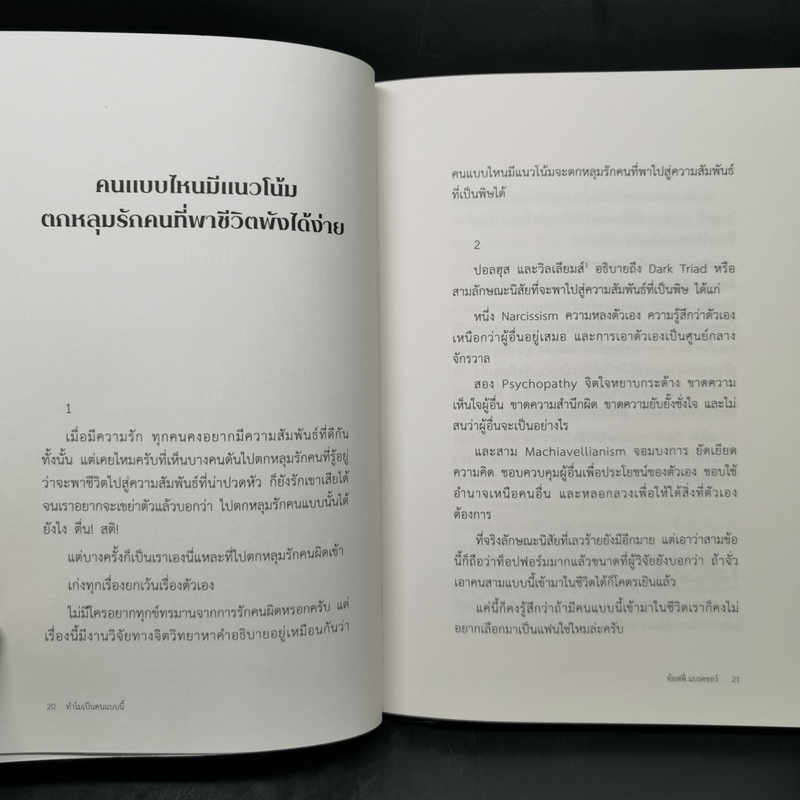 คนแบบไหนมีแนวโน้ม
ตกหลุมรักคนที่พาชีวิตพังได้ง่าย
1
เมื่อมีความรัก ทุกคนคงอยากมีความสัมพันธ์ที่ดีกัน
ทั้งนั้น แต่เคยไหมครับที่เห็นบางคนดันไปตกหลุมรักคนที่รู้อยู่
ว่าจะพาชีวิตไปสู่ความสัมพันธ์ที่น่าปวดหัว ก็ยังรักเขาเสียได้
จนเราอยากจะเขย่าตัวแล้วบอกว่า ไปตกหลุมรักคนแบบนั้นได้
ยังไง ตื่น! สติ!
แต่บางครั้งก็เป็นเราเองนี่แหละที่ไปตกหลุมรักคนผิดเข้า
เก่งทุกเรื่องยกเว้นเรื่องตัวเอง
ไม่มีใครอยากทุกข์ทรมานจากการรักคนผิดหรอกครับ แต่
เรื่องนี้มีงานวิจัยทางจิตวิทยาหาคำอธิบายอยู่เหมือนกันว่า
20 ทำไมเป็นคนแบบนี้
คนแบบไหนมีแนวโน้มจะตกหลุมรักคนที่พาไปสู่ความสัมพันธ์
ที่เป็นพิษได้
2
ปอลฮุส และวิลเลียมส์¹ อธิบายถึง Dark Triad หรือ
สามลักษณะนิสัยที่จะพาไปสู่ความสัมพันธ์ที่เป็นพิษ ได้แก่
หนึ่ง Narcissism ความหลงตัวเอง ความรู้สึกว่าตัวเอง
เหนือกว่าผู้อื่นอยู่เสมอ และการเอาตัวเองเป็นศูนย์กลาง
จักรวาล
สอง Psychopathy จิตใจหยาบกระด้าง ขาดความ
เห็นใจผู้อื่น ขาดความสำนึกผิด ขาดความยับยั้งชั่งใจ และไม่
สนว่าผู้อื่นจะเป็นอย่างไร
และสาม Machiavellianism จอมบงการ ยัดเยียด
ความคิด ชอบควบคุมผู้อื่นเพื่อประโยชน์ของตัวเอง ชอบใช้
อำนาจเหนือคนอื่น และหลอกลวงเพื่อให้ได้สิ่งที่ตัวเอง
ต้องการ
ที่จริงลักษณะนิสัยที่เลวร้ายยังมีอีกมาย แต่เอาว่าสามข้อ
นี้ก็ถือว่าท็อปฟอร์มมากแล้วขนาดที่ผู้วิจัยยังบอกว่า ถ้าจั่ว
เอาคนสามแบบนี้เข้ามาในชีวิตได้ก็โคตรเยินแล้ว
แค่นี้ก็คงรู้สึกว่าถ้ามีคนแบบนี้เข้ามาในชีวิตเราก็คงไม่
อยากเลือกมาเป็นแฟนใช่ไหมล่ะครับ
ท้อฟฟี่ แบรดชอว์ 21